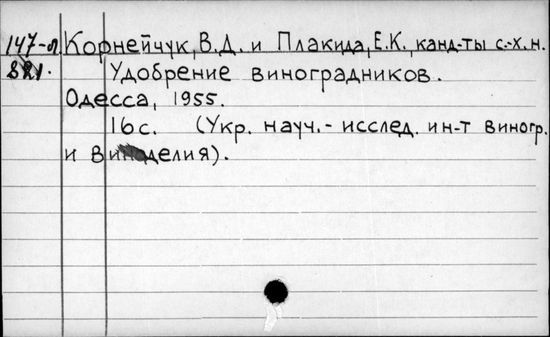 147-л. Корнейчук, В.Д. и Плакида, Е.К., канд-ты с.-х.н.
821. Удобрение виноградников.
Одесса, 1955.
16с. (Укр. науч.-исслед. ин-т виногр.
и виноделия).